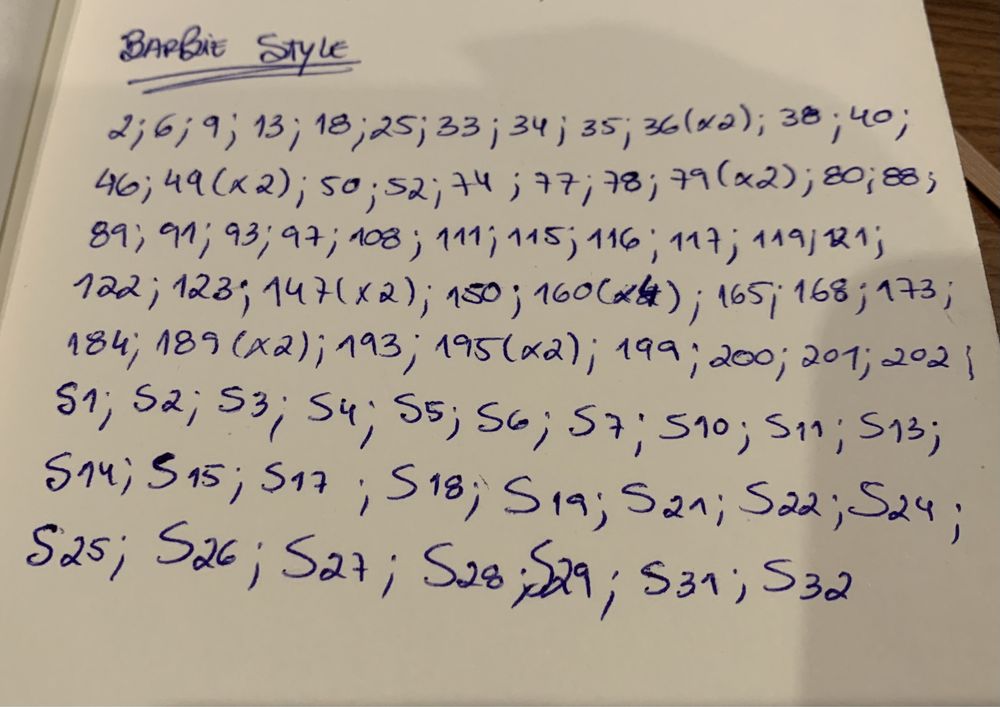 BARBIE STYLE
2; 6; 9; 13; 18; 25; 33; 34; 35; 36(x2); 38; 40;
46; 49(x2); 50; 52; 74; 77; 78; 79(x2); 80; 88;
89; 91; 93; 97; 108; 111; 115; 116; 117; 119; 121;
122; 123; 147(x2); 150; 160(x4); 165; 168; 173;
184; 189(x2); 193; 195(x2); 199; 200; 201; 202;
S1; S2; S3; S4; S5; S6; S7; S10; S11; S13;
S14; S15; S17; S18; S19; S21; S22; S24;
S25; S26; S27; S28; S29; S31; S32